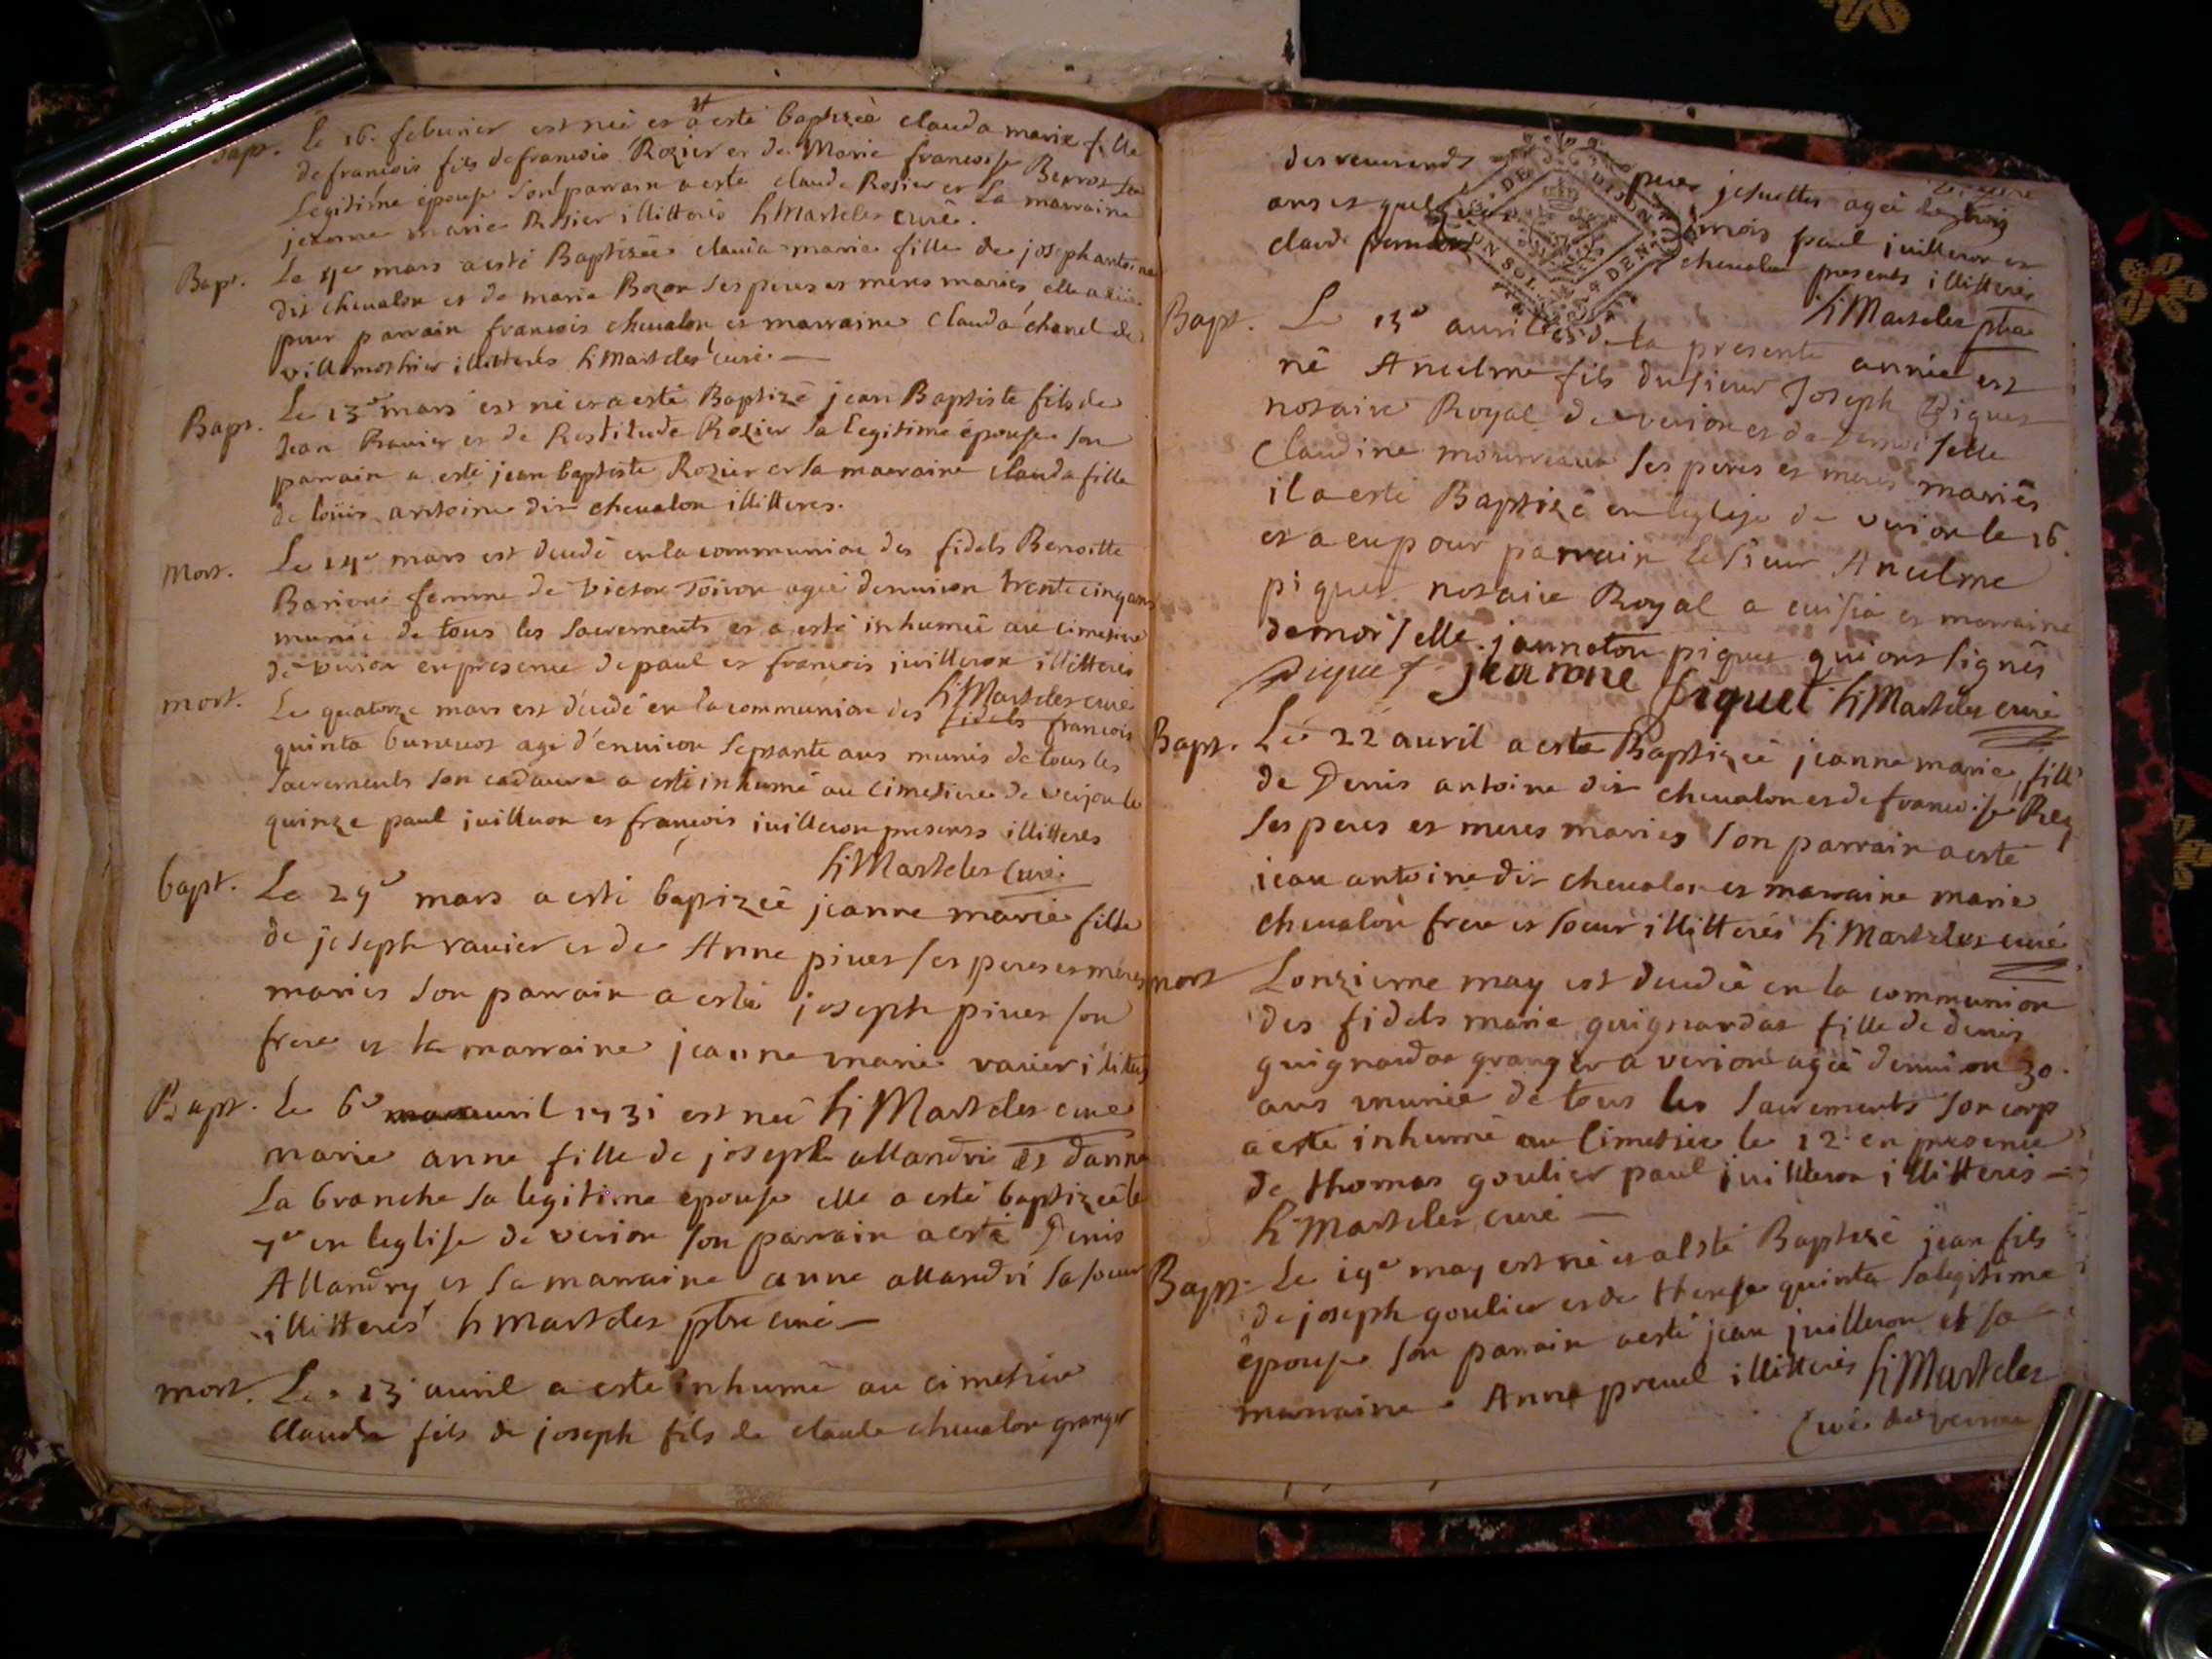 Bapt. Le 16. febvrier est née et a esté baptizeé clauda marie fille
de francois fils de francois Rozier et de Marie francoise sa
Legitime épouse son parrain a esté claude Rosier et La marraine
marie Rosier illitterés h Marteles curé.
Bapt. Le mars a esté Baptizeé clauda marie fille de joseph antoine
dit chevalon et de marie Bozon ses peres et meres mariés elle a
pour parrain francois chevalon et marraine Clauda chanel de
villemostier illitterés h Marteles curé.
Bapt. Le 13e mars est né et a esté Baptizé jean Baptiste fils de
Jean Ravier et de Restitude Rozier sa legitime épouse son
parrain a esté jean baptiste Rozier et sa marraine clauda fille
de loüis antoine dit chevalon illitteres.
Mort. Le 14e mars est decedé en la communion des fidels Benoitte
femme de victor Toivon ageé d'environ trente cinq ans
muniê de tous les sacrements et a esté inhumeé au cimetiere
de verion en presence de paul et francois juilleron illitterés
h Marteles curé
mort. Le quatorze mars est décédé en la communion des fidels francois
quinta agé d'environ septante ans munis de tous les
sacrements son cadavre a esté inhumé au cimetiere de verjon le
quinze paul juilleron et francois juilleron presents illitteres
h Marteles Curé
bapt. Le 29e mars a esté baptizeé jeanne marie fille
de joseph ravier et de Anne piver ses peres et meres
mariés son parrain a esté joseph piver son
frere et la marraine jeanne marie ravier
Bapt. Le 6e avril 1731 est neé h Marteles curé
marie anne fille de joseph allandri et d'anne
La branche sa legitime epouse elle a esté baptizeé le
7e en leglise de verion son parrain a esté Denis
Allandry et sa marraine anne allandri sa soeur
illitterés h Marteles ptre curé
mort. Le 13 avril a esté inhumé au cimetiere
claude fils de joseph fils de claude chevalon granger
des reverends peres jesuittes ageé de trois
ans et quelques mois paul juilleron et
claude chevalon presents illitterés
h Marteles ptre
Bapt. Le 15e avril de la presente année est
né Anselme fils du sieur Joseph Piquet
notaire Royal de verion et de demoiselle
Claudine ses peres et meres mariés
il a esté Baptizé en leglise de verion le 16.
et a eu pour parrain le sieur Anselme
piquet notaire Royal a cuisia et marraine
demoiselle janneton piquet qui ont signés
Piquet jeanne piquet h Marteles curé
Bapt. Le 22 avril a esté Baptizeé jeanne marie fille
de Denis antoine dit chevalon et de francoise Rey
ses peres et meres mariés son parrain a esté
jean antoine dit chevalon et marraine marie
chevalon frere et soeur illitterés h Marteles curé
mort Lonzieme may est decedeé en la communion
des fidels marie guignardat fille de denis
guignardat granger a verion ageé denvion 30.
ans munie de tous les sacrements son corp
a esté inhumé au Cimetiere le 12 en presence
de thomas goulier paul juilleron illitteres
h Marteles curé
Bapt. Le 19e may est né et a esté Baptizé jean fils
de joseph goulier et de therese quinta sa legitime
épouse son parrain a esté jean juilleron et sa
marraine Anne illitterés h Marteles
Curé de